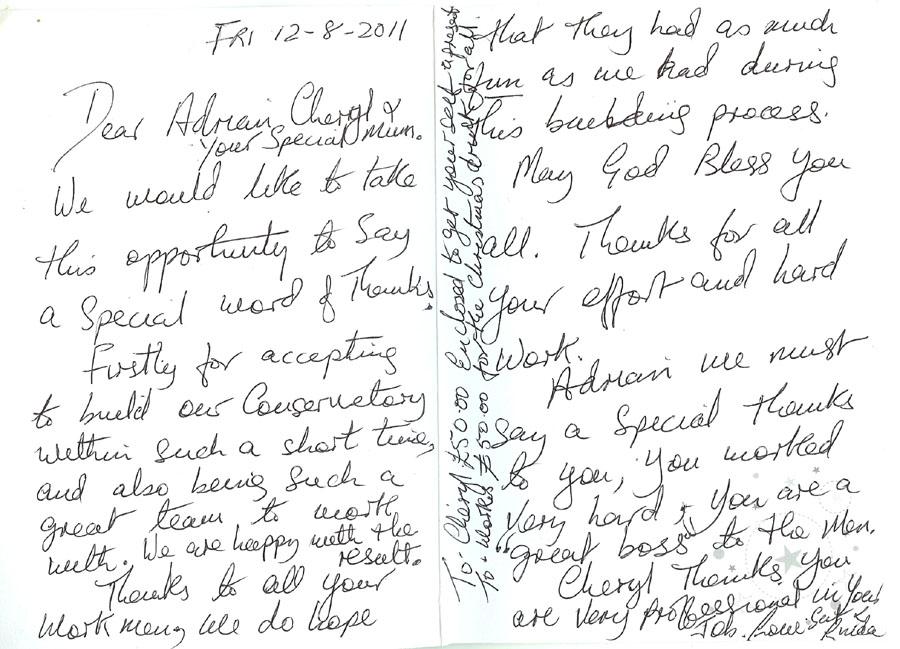 FRI 12-8-2011
Dear Adrian, Cheryl &
Your Special Mum.
We would like to take
this opportunity to Say
a Special word of Thanks.
Firstly for accepting
to build our Conservatory
within such a short time,
and also being such a
great team to work
with. We are happy with the
result.
Thanks to all your
work men, we do hope
that they had as much
fun as we had during
this building process.
May God Bless You
all. Thanks for all
your effort and hard
work.
Adrian we must
Say a Special Thanks
to you, you worked
very hard, & you are a
"great boss" to the Men.
Cheryl Thanks, you
are very professional in Your
Job. Love
To:- Cheryl £50.00 Enclosed to get your self a present
To:- Workers £50.00 for the Christmas drink for all.